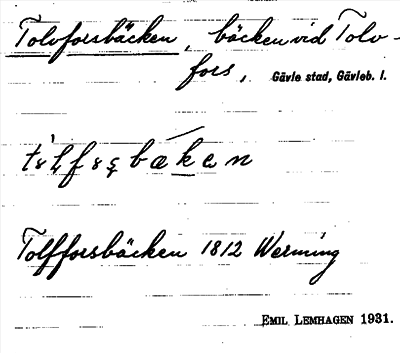 Tolvforsbäcken, bäcken vid Tolv-
fors, Gävle stad, Gävleb. l.
Tolfforsbäcken 1812 Werming
EMIL LEMHAGEN 1931.